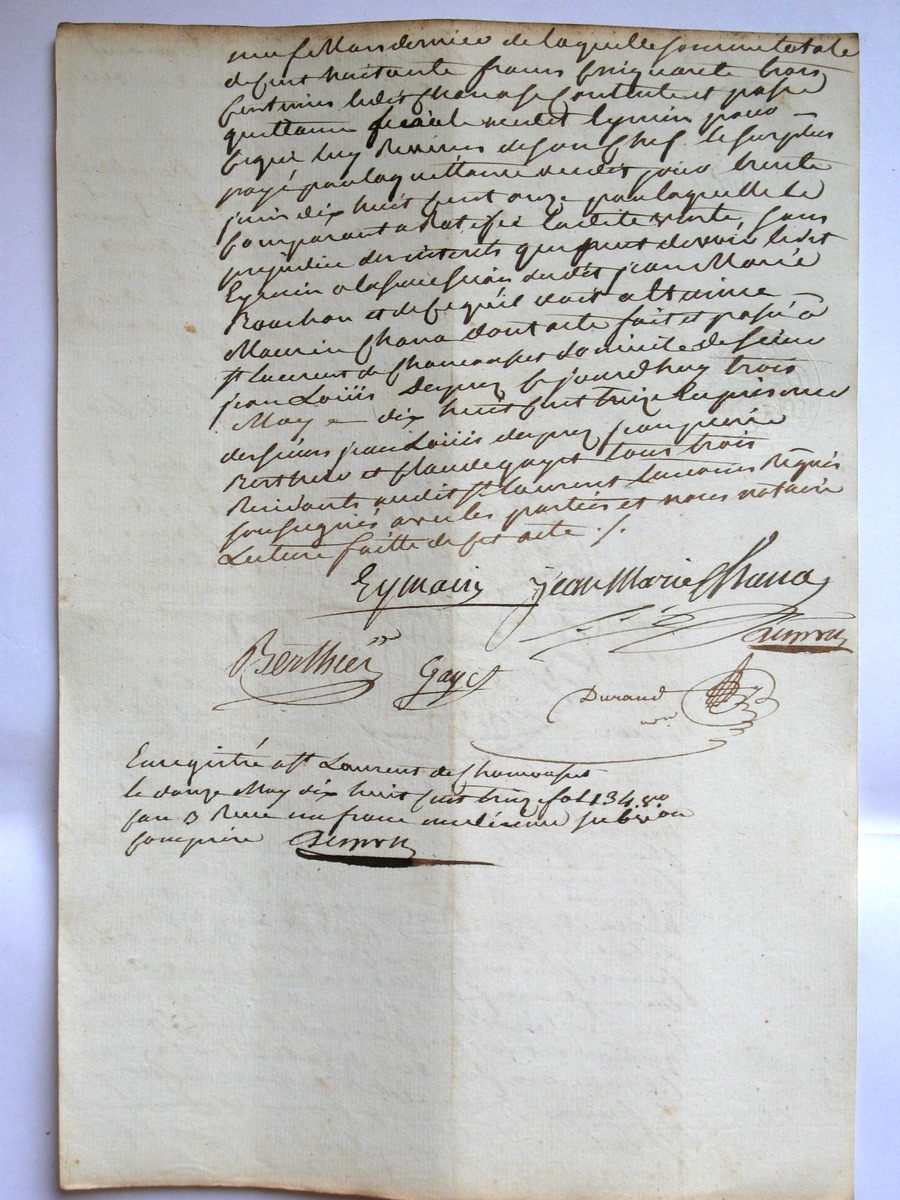 neuf Mars dernier de laquelle somme totale
de cent huitante francs cinquante trois
centimes ledit Chana se contente et passe
quittance finale audit Eymin pour
ce qui luy revient de son chef le surplus
payé par la quittance dudit jour trente
juin dix huit cent onze par laquelle le
comparant a ratifié ladite vente, sans
prejudice des interets que peut devoir ledit
Eymin a la succession dudit jean Marie
et de ce qu'il doit a Antoine
Maurin Chana dont acte fait et passé a
St laurent de Chamousset domicile de sieur
jean Loüis Dupuy ce jourdhuy trois
May dix huit cent treize en presence
des sieurs jean Loüis dupuy jean pierre
Berthier et Claude gayet tous trois
Residants audit St laurent temoins Requis
soussignés avec les parties et nous notaire
Lecture faitte de cet acte ./.
Eymain jean Marie Chana
Berthier Gayet
Durand
nore
Enregistré a St Laurent de Chamousset
le douze May dix huit cent treize fol 134 vo
Case 3 Recu un franc un decime subvon
comprise